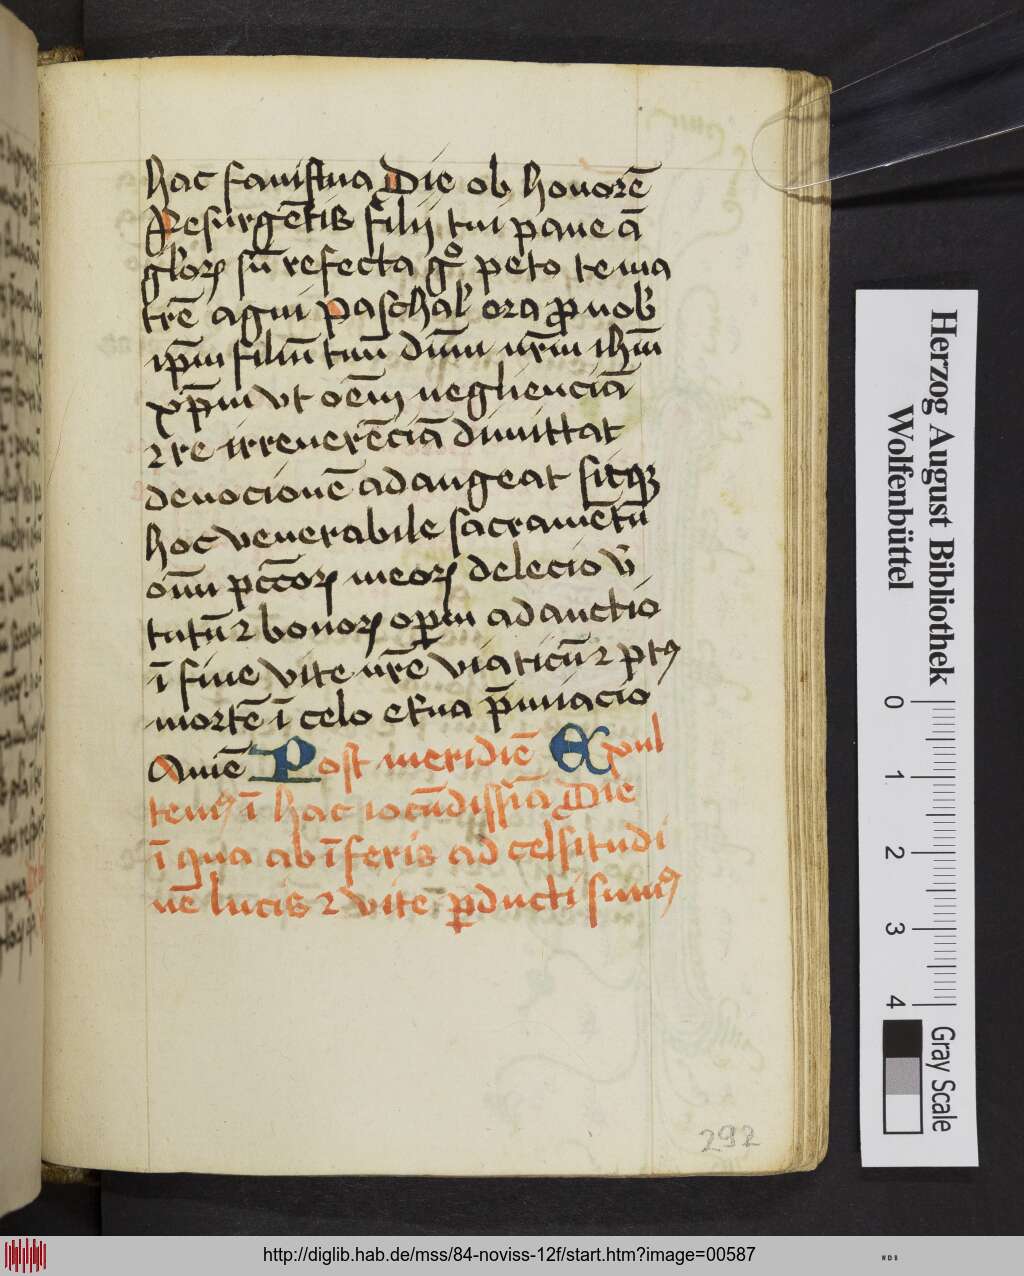 hac faustiua Die ob honorē
Resurgētis filij tui pane ā
glorꝝ sū refecta gͦ peto te ma
trē agni paschal ora ꝓ nob
ip̄m filiū tuū dn̄m nr̄m ihm̄
xp̄m vt oēm negliēnciā
ꝛ re irreuerēciā dimittat
deuocionē adaugeat sitqꝫ
hoc venerabile sacramētū
oīm pctōrꝝ meorꝝ delecio v̄
tutū ꝛ bonorꝝ opm̄ adauctio
ī fine vite nr̄e viaticū ꝛ ptꝰ
mortē ī celo et̄na p̄miacio
Amē Post meridiē Exoul
temꝰ ī hac iocūdissīa Die
ī qua ab īferis ad celsitudi
nē lucis ꝛ vite ꝑducti sumꝰ
292
Herzog August Bibliothek
Wolfenbüttel
0 1 2 3 4
Gray Scale
http://diglib.hab.de/mss/84-noviss-12f/start.htm?image=00587